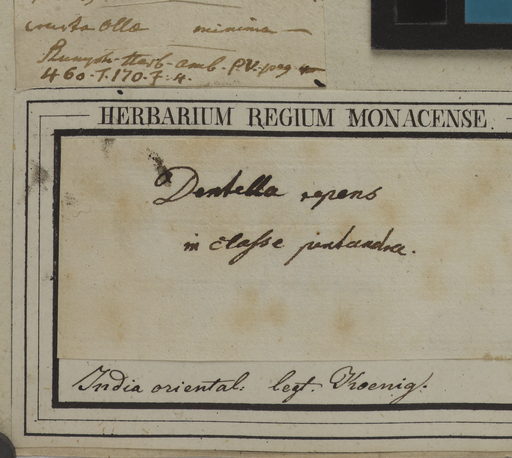 minima —
Rumph. Herb. amb. P.V. pag.
460. T. 170. F. 4.
HERBARIUM REGIUM MONACENSE
Dentella repens
in classe pentandra.
India oriental: legt. Koenig.